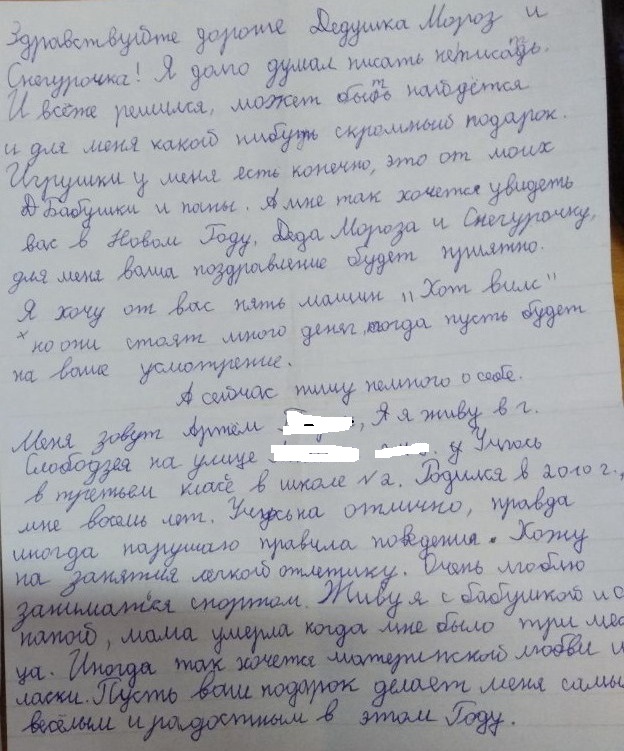 Здравствуйте дорогие Дедушка Мороз и
Снегурочка! Я долго думал писать неписать.
И всёже решился, может быть найдётся
и для меня какой нибуть скромный подарок.
Игрушки у меня есть конечно, это от моих
Бабушки и папы. А мне так хочется увидеть
вас в Новом Году, Деда Мороза и Снегурочку,
для меня ваша поздравление будет приятно.
Я хочу от вас пять машин „Хот вилс"
но они стоят много денег, тогда пусть будет
на ваше усмотрение.
А сейчас пишу немного о себе.
Меня зовут Артём , Я я живу в г.
Слободзея на улице у Учусь
в третьем класе в школе №2. Родился в 2010 г.,
мне восемь лет. Учусьна отлично, правда
иногда нарушаю правила поведения. Хожу
на занятия легкой отлетику. Очень люблю
заниматься спортом. Живу я с бабушкой и с
папой, мама умерла когда мне было три мес
ца. Иногда так хочется материнской любви и
ласки. Пусть ваш подарок делает меня самы
весёлым и радостным в этом Году.